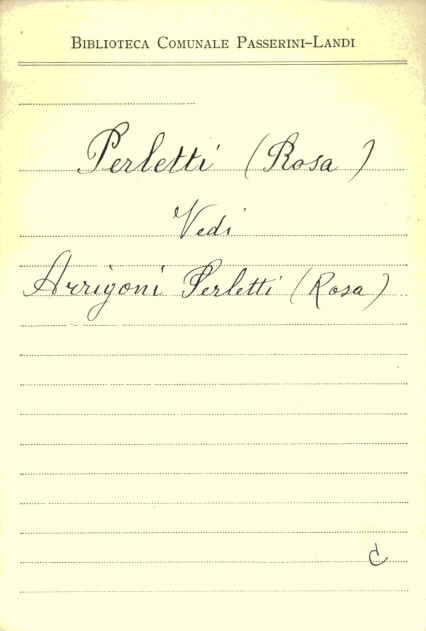 BIBLIOTECA COMUNALE PASSERINI-LANDI
Perletti (Rosa)
Vedi
Arrigoni Perletti (Rosa)
C